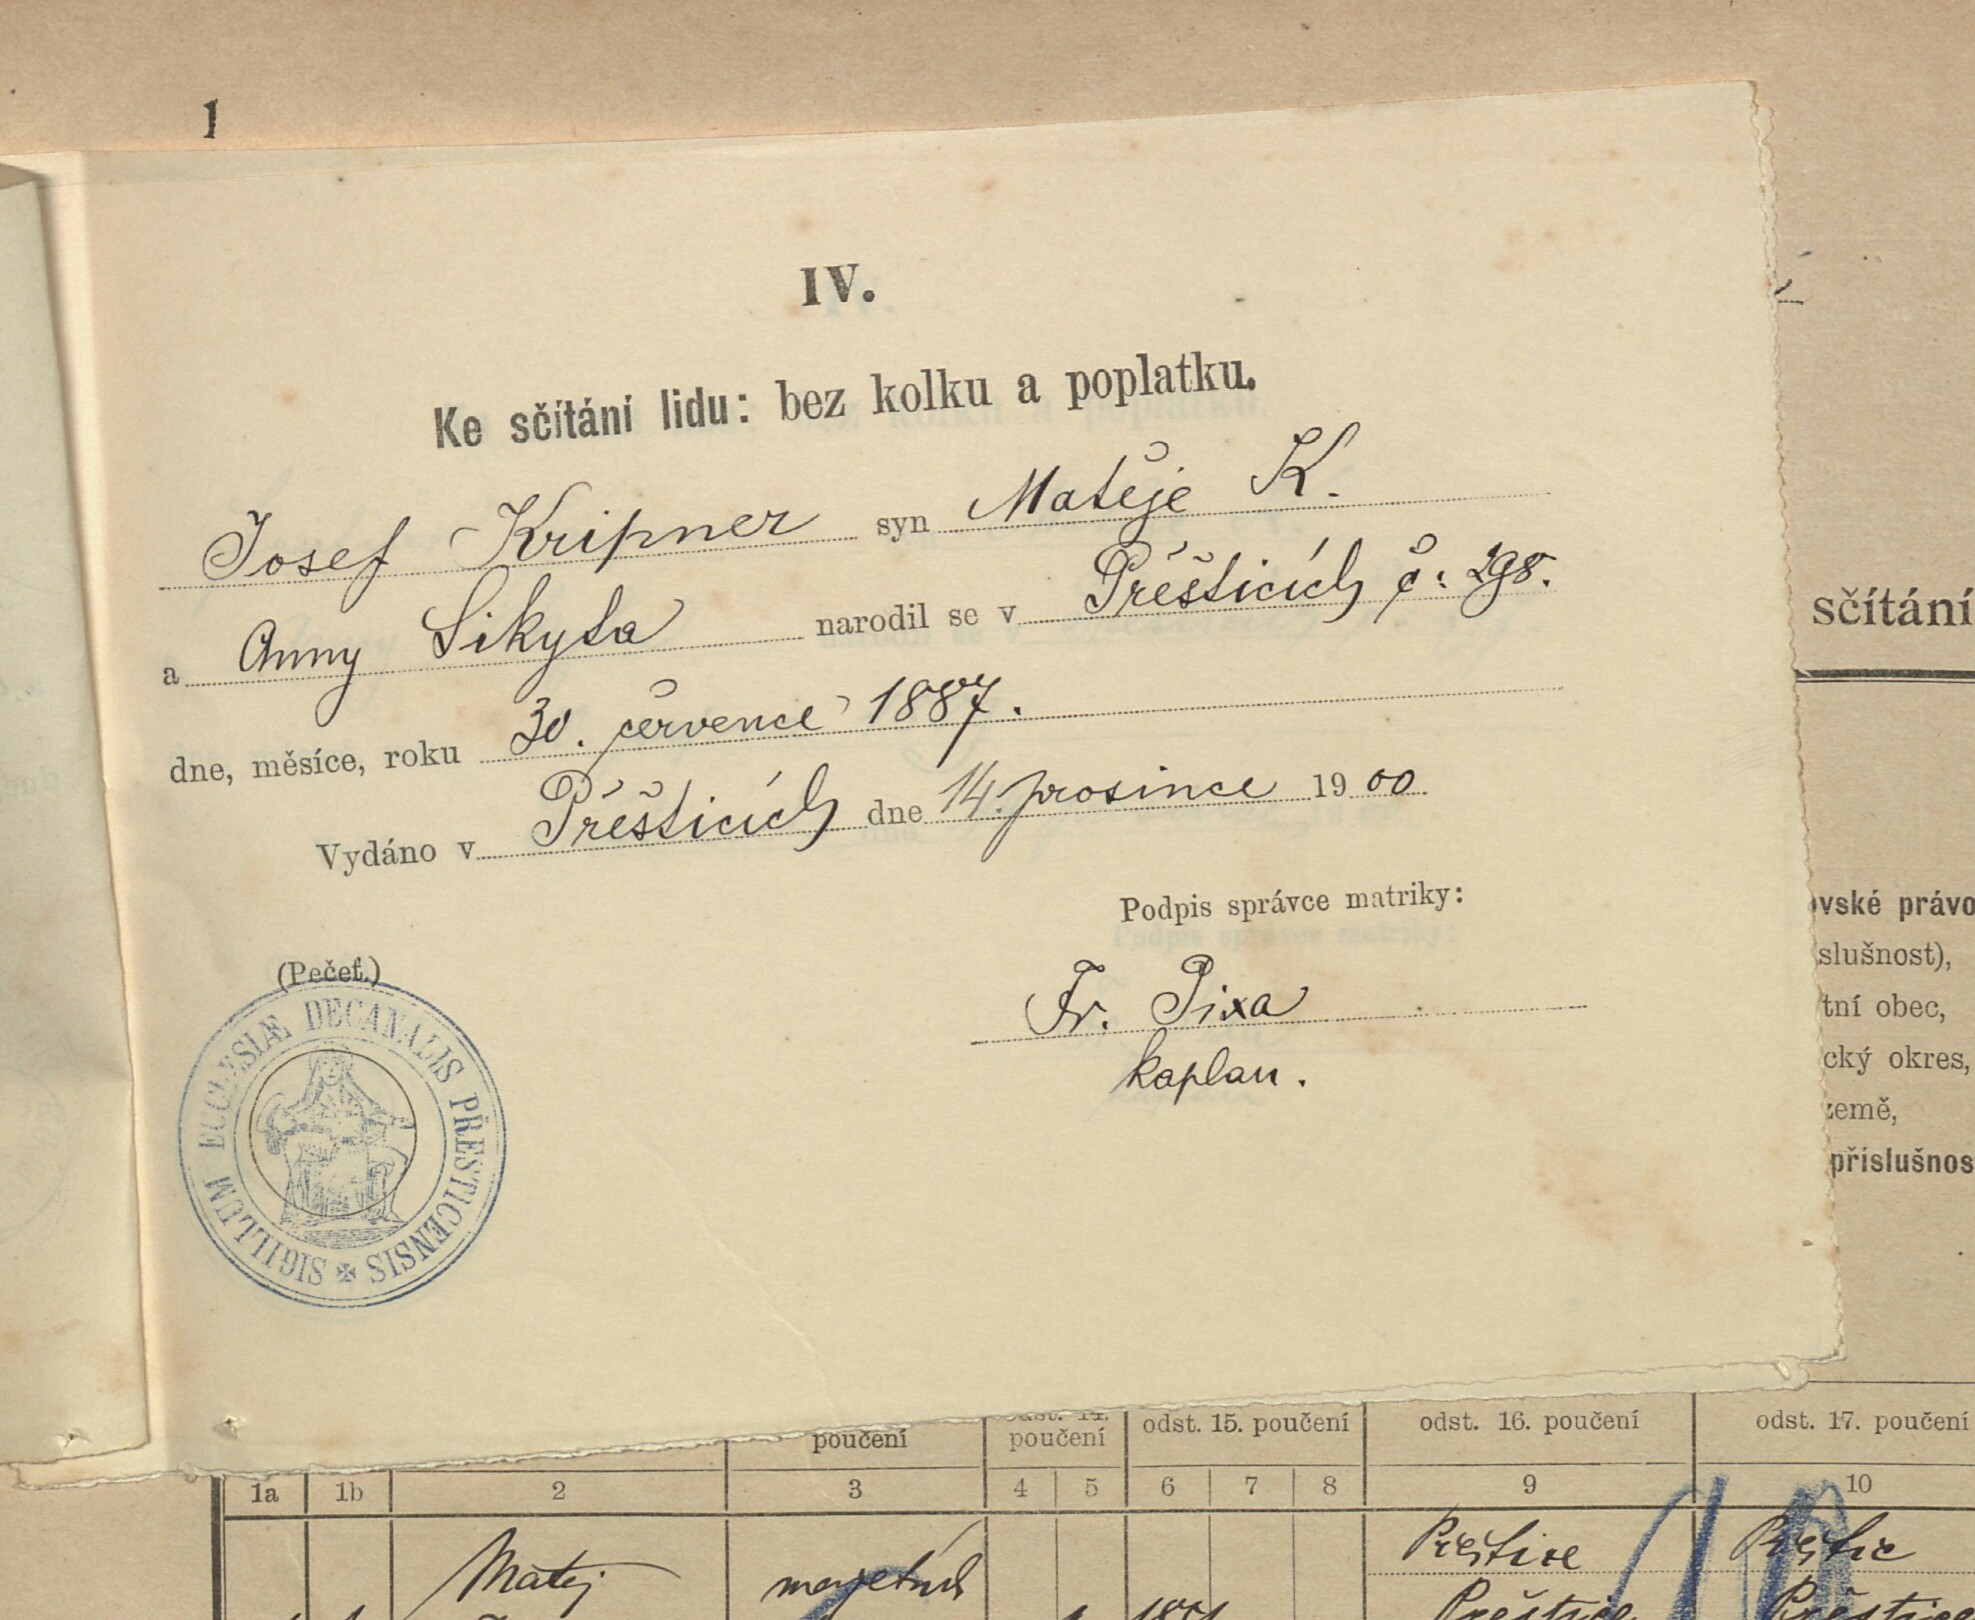 1
IV.
Ke sčítání lidu: bez kolku a poplatku.
Josef Kripner syn Matěje K.
a Anny Sikyta narodil se v Přešticích č. 298.
dne, měsíce, roku 30. července 1887.
Vydáno v Přešticích dne 14. prosince 1900
Podpis správce matriky:
Fr. Pixa
kaplan.
(Pečeť.)
SIGILLUM ECCLESIÆ DECANALIS PŘESTICENSIS
sčítání
ovské právo
slušnost),
tní obec,
cký okres,
země,
příslušnos
poučení
odst. 14. poučení
odst. 15. poučení
odst. 16. poučení
odst. 17. poučení
1a 1b 2 3 4 5 6 7 8 9 10
Matej
Přeštice